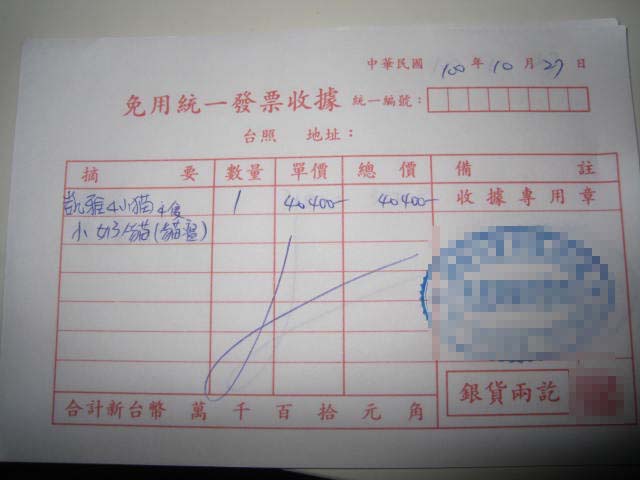 中華民國 100 年 10 月 27 日
免用統一發票收據 統一編號：
台照 地址：
摘 要 數量 單價 總 價 備 註
凱雅4小貓 1 40400- 40400- 收據專用章
小奶貓(貓瘟)
銀貨兩訖
合計新台幣 萬 千 百 拾 元 角